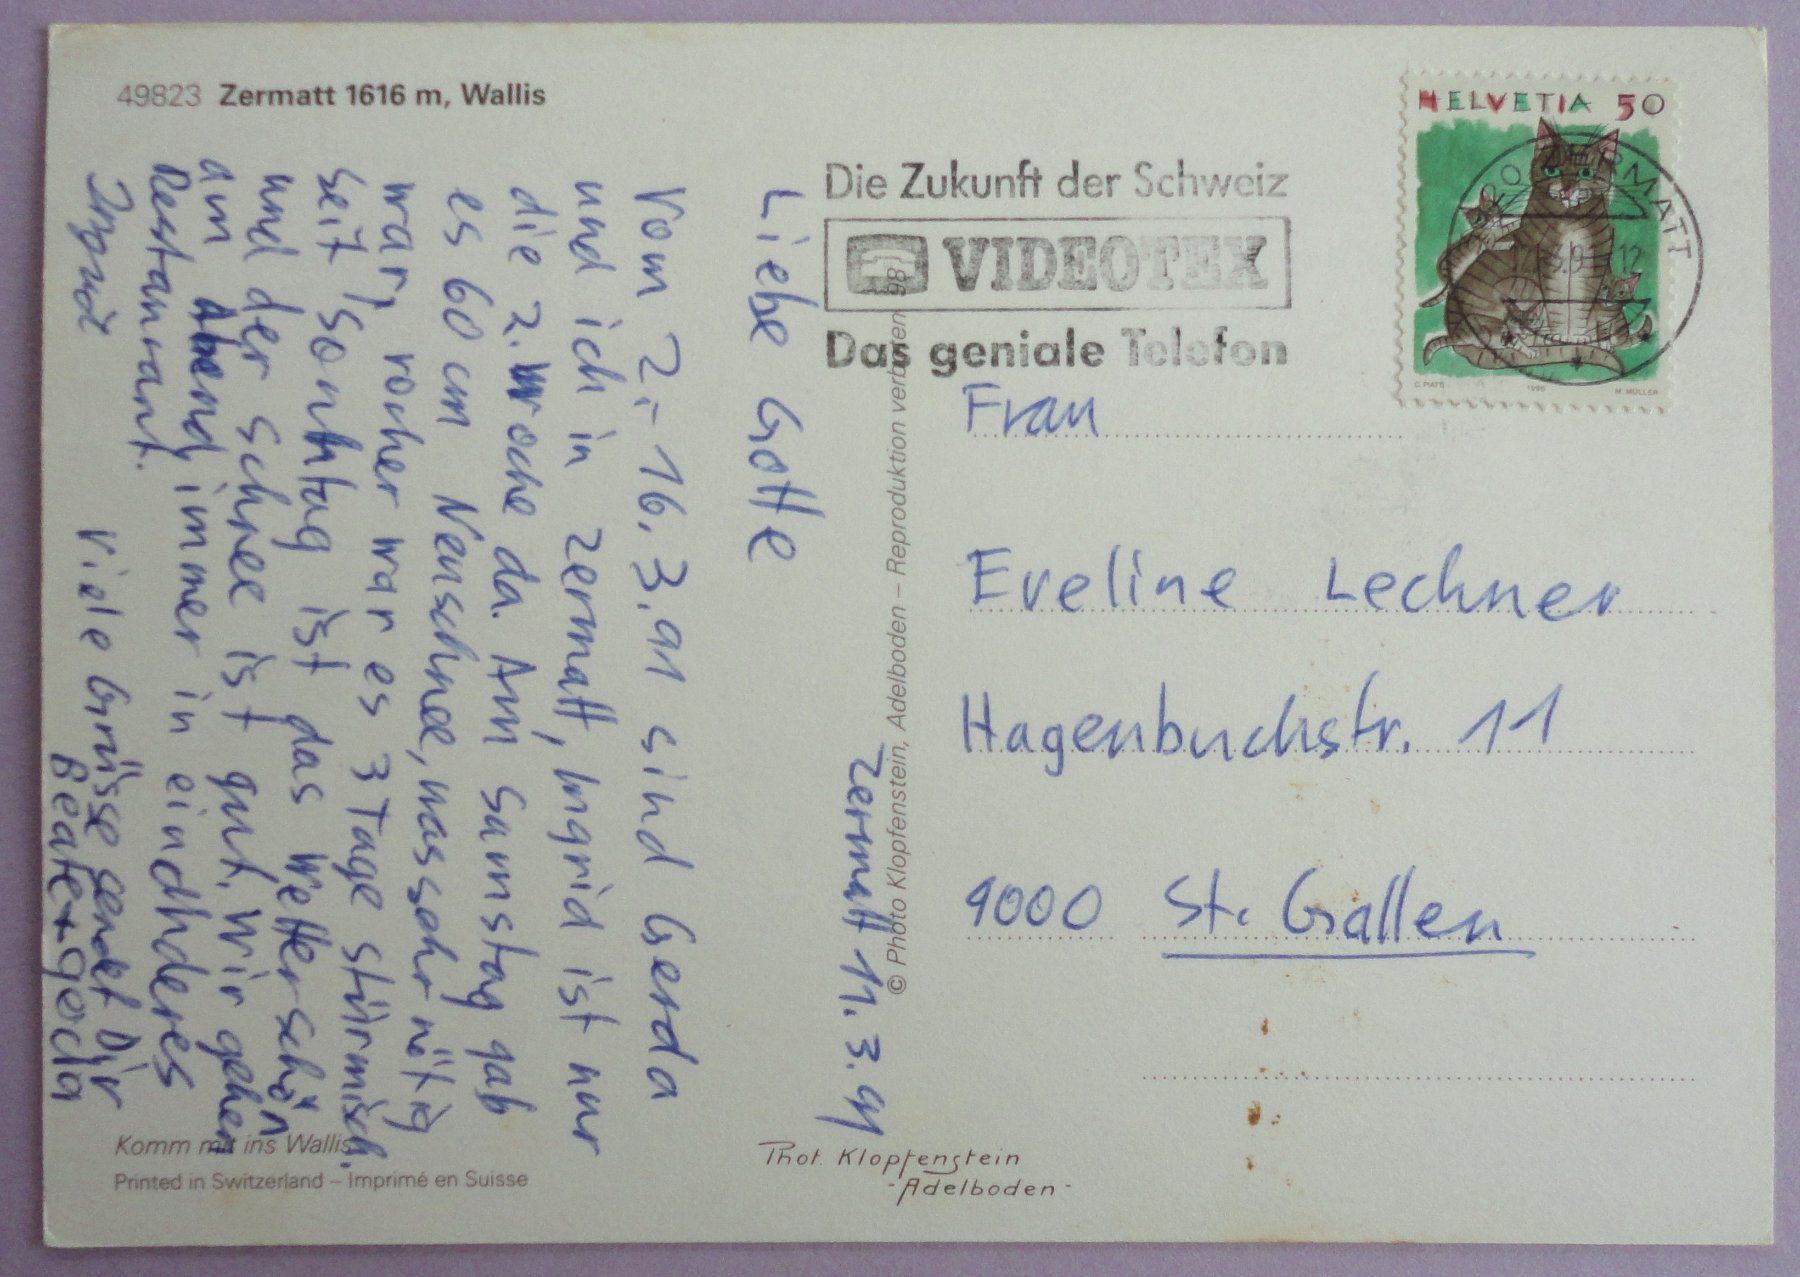 49823 Zermatt 1616 m, Wallis
HELVETIA 50
Die Zukunft der Schweiz
VIDEOTEX
Das geniale Telefon
ZERMATT
12
C. PIATTI 1990 M. MÜLLER
Zermatt 11. 3. 91
Liebe Gotte
Vom 2.- 16. 3. 91 sind Gerda
und ich in Zermatt, Ingrid ist nur
die 2. Woche da. Am Samstag gab
es 60 cm Neuschnee, was sehr nötig
war, vorher war es 3 Tage stürmisch.
Seit Sonntag ist das Wetter schön
und der Schnee ist gut. Wir gehen
am Abend immer in ein anderes
Restaurant.
Viele Grüsse sendet Dir
Ingrid Beate + Gerda
Frau
Eveline Lechner
Hagenbuchstr. 11
9000 St. Gallen
© Photo Klopfenstein, Adelboden – Reproduktion verboten 98
Komm mit ins Wallis
Printed in Switzerland – Imprimé en Suisse
Phot. Klopfenstein
- Adelboden -